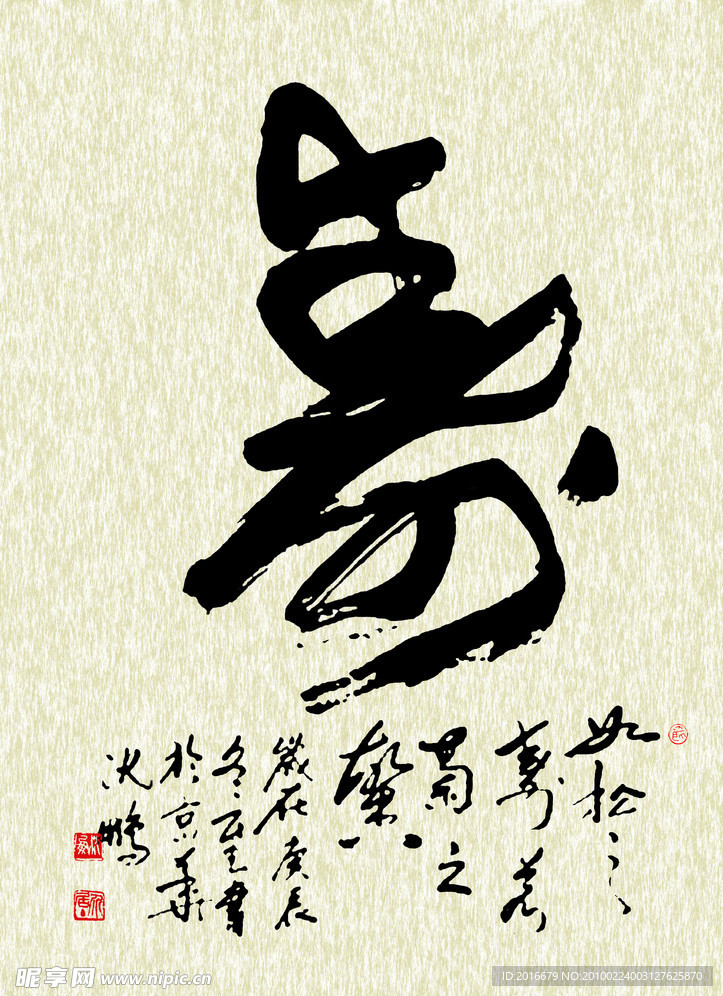 壽
如松之
壽若
蘭之
馨
歲在庚辰
冬書
於京華
沈鵬
昵享网 www.nipic.cn
ID:2016679 NO:20100224003127625870